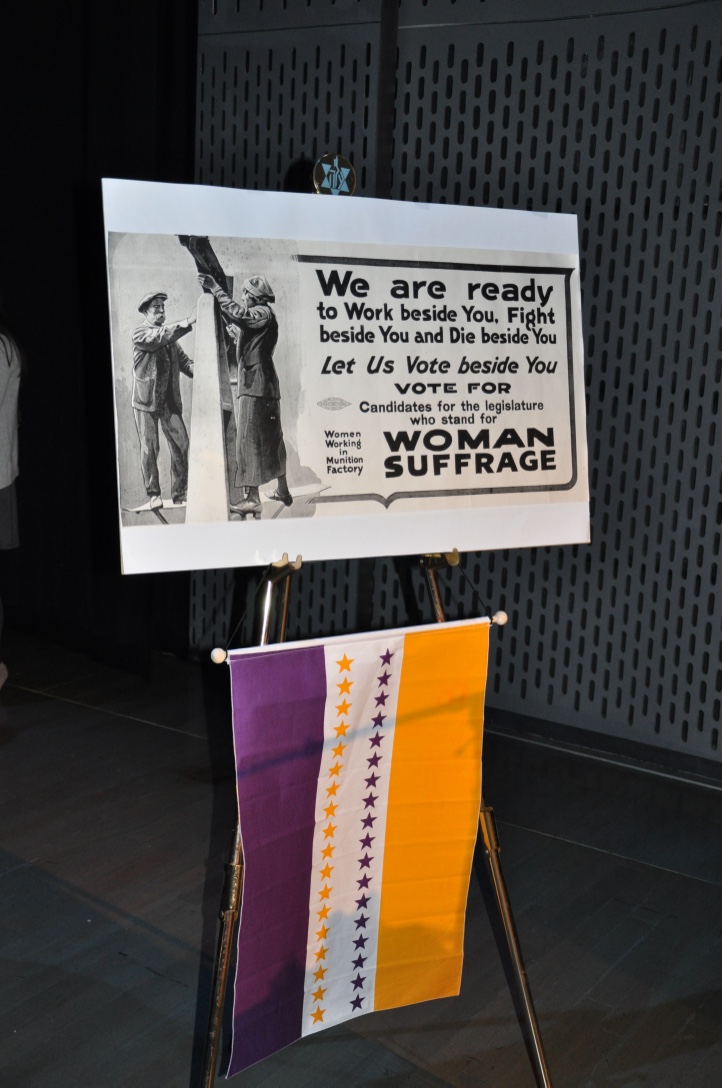 We are ready
to Work beside You, Fight
beside You and Die beside You
Let Us Vote beside You
VOTE FOR
Candidates for the legislature
who stand for
Women
Working
in
Munition
Factory
WOMAN
SUFFRAGE